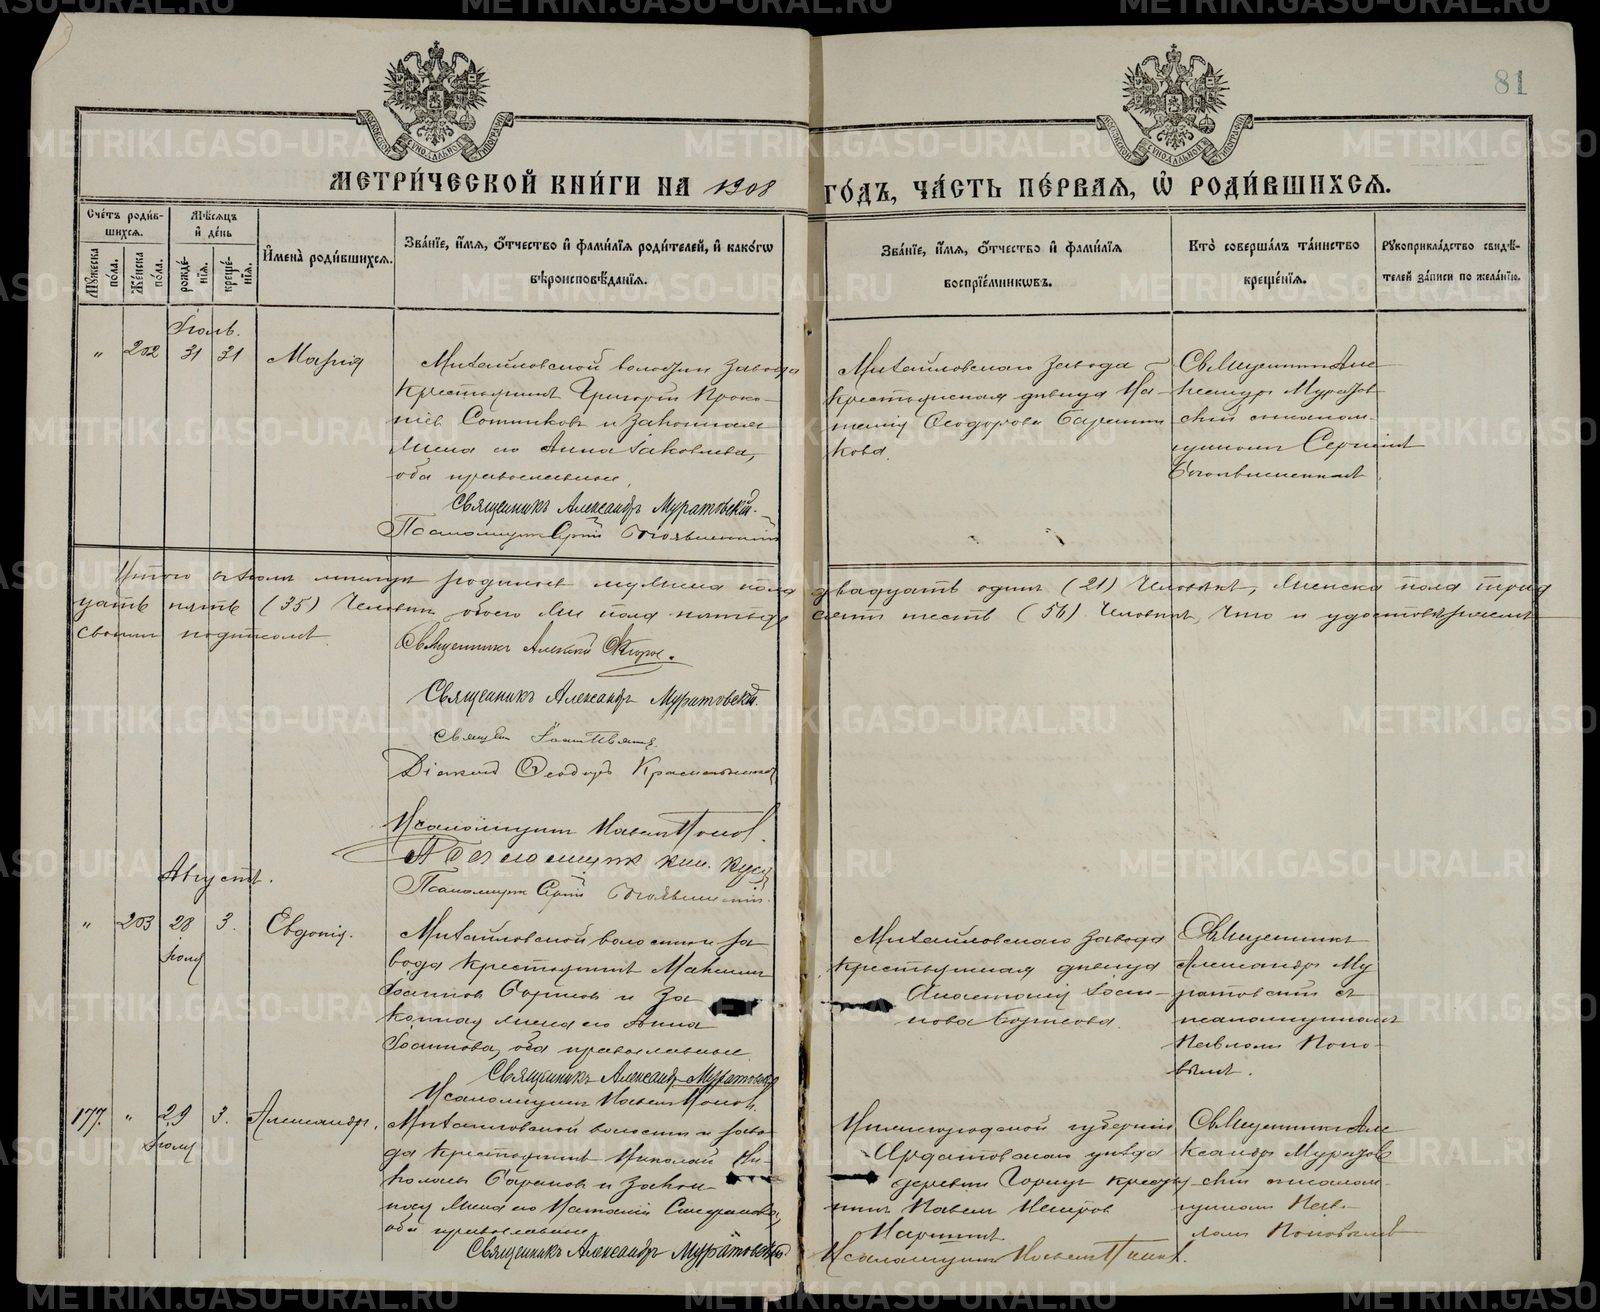 81
МЕТРИ́ЧЕСКОЙ КНИ́ГИ НА 1908 ГО́ДЪ, ЧА́СТЬ ПЕ́РВАЯ, Ѡ҆ РОДИ́ВШИХСЯ.
Сче́тъ роди́в-
шихся.
Мѣ́сяцъ
и҆ де́нь
Му́жеска
по́ла.
Же́нска
по́ла.
рожде́-
нїя.
креще́-
нїя.
И҆мена̀ роди́вшихся.
Зва́нїе, и҆́мя, ѻ҆́тчество и҆ фами́лїя роди́телей, и҆ како́гѡ
вѣроисповѣ́данїя.
Зва́нїе, и҆́мя, ѻ҆́тчество и҆ фами́лїя
воспрїе́мникѡвъ.
Кто̀ соверша́лъ та́инство
креще́нїя.
Рꙋкоприкла́дство свидѣ́-
телей за́писи по жела́нїю.
Іюль.
" 202 31 31 Марія
Михайловской волости завода
крестьянинъ Григорій Проко-
піевъ Сотниковъ и законная
жена его Анна Іаковлева,
оба православные.
Священникъ Александръ Муратовскій.
Псаломщикъ Сергій Богоявленскій
Михайловскаго завода
крестьянская дѣвица На-
талія Ѳеодорова
кова.
Священникъ Але-
ксандръ Муратов-
скій с псалом-
щикомъ Сергіемъ
Богоявленскимъ
Итого въ іюлѣ мѣсяцѣ родилось мужеска пола двадцать одинъ (21) человѣкъ, женска пола трид
цать пять (35) человѣкъ, обоего же пола пятьде сятъ шесть (56) человѣкъ, что и удостовѣряемъ
своимъ подписомъ.
Священникъ Алексій
Священникъ Александръ Муратовскій.
Діаконъ Ѳеодоръ
Псаломщикъ Павелъ Поповъ.
Псаломщикъ
Псаломщикъ Сергій Богоявленскій.
Августъ.
" 203 28 3. Евдокія.
Іюля
Михайловской волости и за
вода крестьянинъ Максимъ
Іоанновъ и за
конная жена его Анна
Іоаннова, оба православные.
Священникъ Александръ Муратовскій
Псаломщикъ Павелъ Поповъ.
Михайловскаго завода
крестьянская дѣвица
Анастасія Іоан-
нова
Священникъ
Александръ Му
ратовскій съ
псаломщикомъ
Павломъ Попо-
вымъ.
177. " 29 3. Александръ.
Іюля
Михайловской волости и заво-
да крестьянинъ Николай Ни-
колаевъ и закон-
ная жена его Наталія
оба православные
Священникъ Александръ Муратовскій
Нижегородской губерніи
Ардатовскаго уѣзда
деревни кресть
нинъ Павелъ
Псаломщикъ Павелъ Поповъ.
Священникъ Але
ксандръ Муратов
скій с псалом-
щикомъ Пав-
ломъ Поповымъ
METRIKI.GASO-URAL.RU